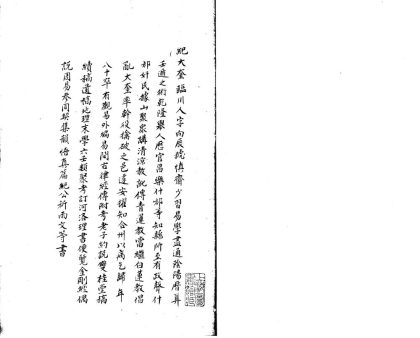 紀大奎 臨川人字向辰號慎齋少習易學盡通陰陽曆算
壬遁之術乾隆舉人歷官昌樂什邡等知縣所至有政聲什
邡奸民據山聚眾講清涼教訛傳青蓮教當繼白蓮教倡
亂大奎率幹役擒破之邑遂安擢知合州以病乞歸 年
八十卒有觀易外編易問古律經傳附考老子約說雙桂堂稿
續稿遺稿地理末學六壬類聚考訂河洛理書便覽金剛經偶
說周易參同契集韻悟真篇紀公祈雨文等書